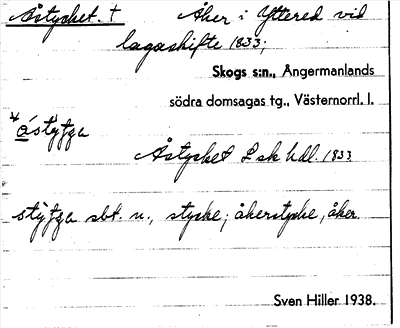 Åstycket. † Åker i Yttered vid
lagaskifte 1833;
Skogs s:n., Ångermanlands
södra domsagas tg., Västernorrl. l.
Åstycket L sk hdl. 1833
sbt. n., stycke; åkerstycke, åker.
Sven Hiller 1938.